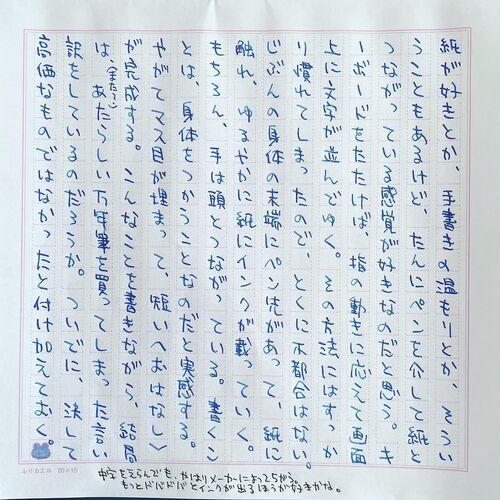 紙が好きとか、手書きの温もりとか、そうい
うこともあるけど、たんにペンを介して紙と
つながっている感覚が好きなのだと思う。キ
ーボードをたたけば、指の動きに応えて画面
上に文字が並んでゆく。その方法にはすっか
り慣れてしまったので、とくに不都合はない。
じぶんの身体の末端にペン先があって、紙に
触れ、ゆるやかに紙にインクが載っていく。
もちろん、手は頭とつながっている。書くこ
とは、身体をつかうことなのだと実感する。
やがてマス目が埋まって、短い〈おはなし〉
が完成する。こんなことを書きながら、結局
は、(またもや)あたらしい万年筆を買ってしまった言い
訳をしているのだろうか。ついでに、決して
高価なものではなかったと付け加えておく。
ふりカエル 20×15
中字をえらんでも、やはりメーカーによってちがう。
もっとドバドバとインクが出るほうが好きかな。